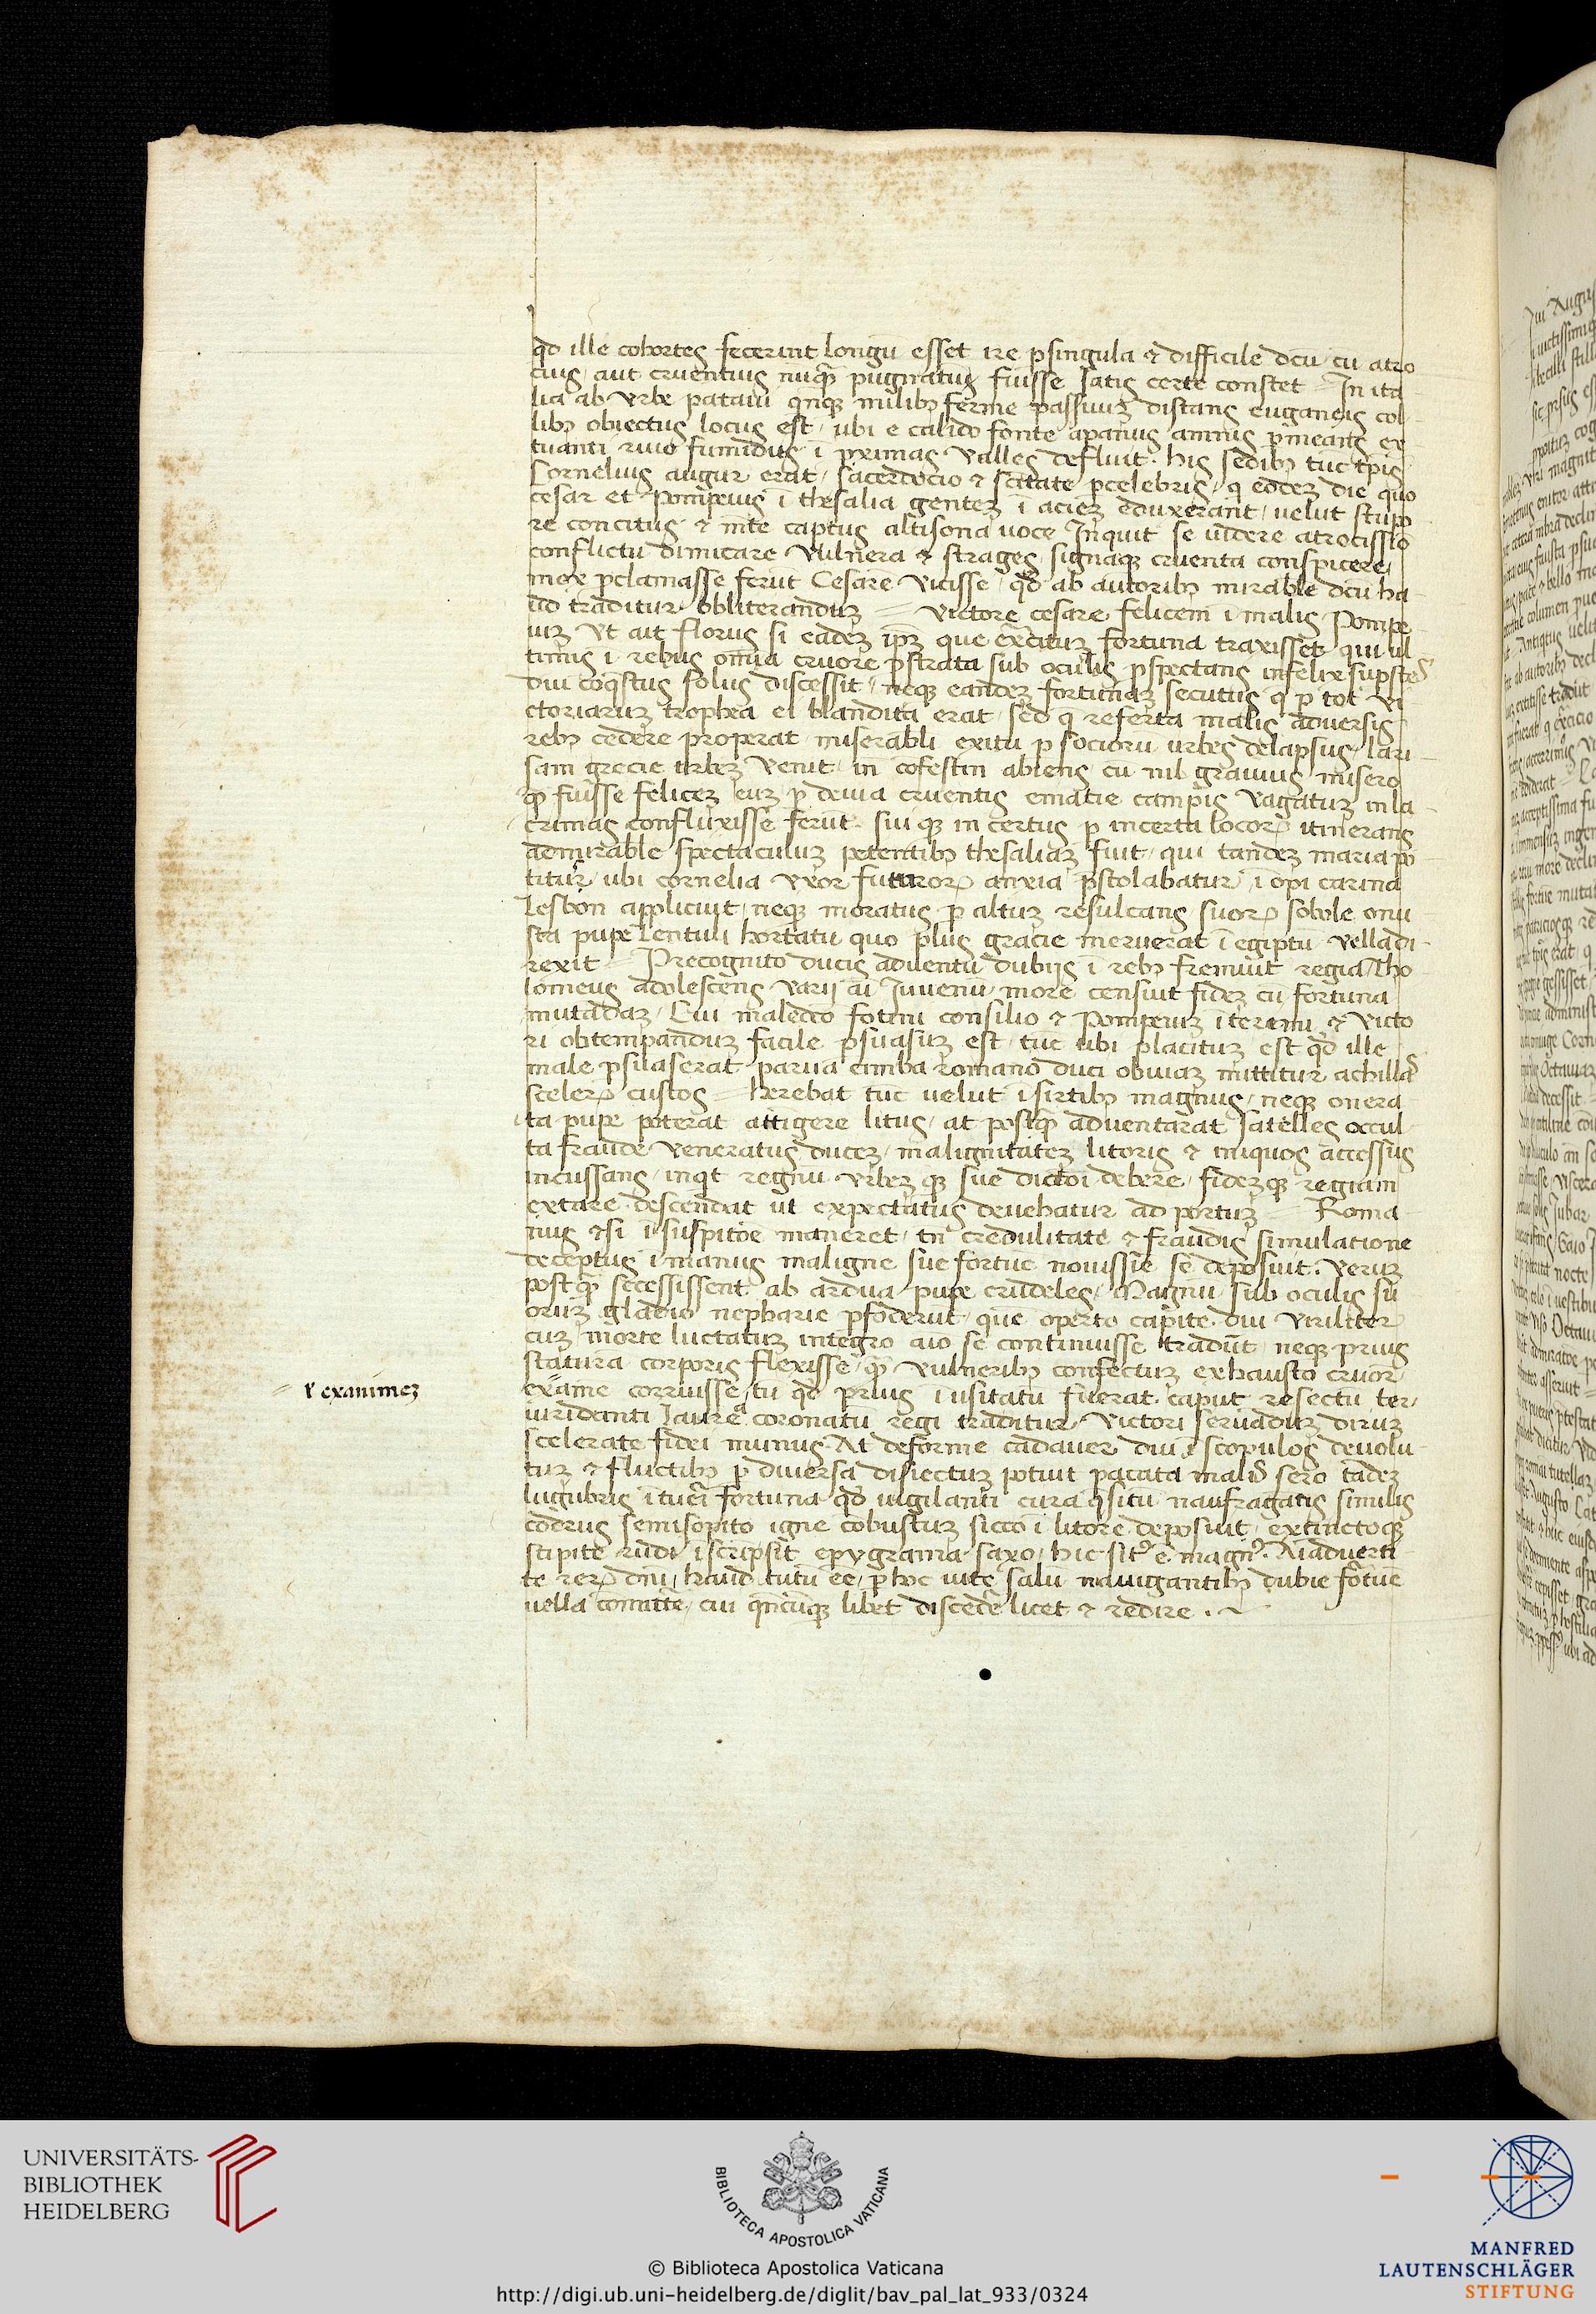 qd ille cohortes fecerint longū esset ire ꝑ singula ⁊ difficile dcū cū atro
cius aut cruentius nūqȝ pugnatuȝ fuisse satis certe constet = In ita
lia ab vrbe patauī qnqȝ milibȝ ferme passuuȝ distans euganeis col
libȝ obiectus locus est ubi e calido fonte apanus amnis pmeans ex
tuanti riuo fumidus ī proximas valles defluit. his sedibȝ tūc tpis
Cornelius augur erat sacerdocio ⁊ scitate pcelebris q eodeȝ die quo
cesar et Pompeius ī thesalia genteȝ ī acieȝ eduxerant velut stupo
re concitus ⁊ mte captus altisona uoce Inquit se uidere atrocissiō
conflictu dimicare vulnera ⁊ strages signaqȝ cruenta conspicere
mox pclamasse ferūt Cesare vicisse qd ab autoribȝ mirable dcū ha
ud traditur obliteranduȝ = victore cesare felicem ī malis Pompe
iuȝ vt ait florus si eadeȝ ipȝ que exercituȝ fortuna traxisset qui ul
timis ī rebus omīa cruore pstrata sub oculis pspectans infelix supstes
diu coqstus solus discessit neqȝ eandeȝ fortunaȝ secutus q p tot vi
ctoriaruȝ trophea ei blandita erat sed q referta malis aduersis
rebȝ cedere properat miserabli exitu p sociorū urbes delapsus lari
sam grecie urbeȝ venit in cofestin abiens cū nil grauius misero
qȝ fuisse feliceȝ euȝ p deuia cruentis ematie campis vagatuȝ in la
crimas confluxisse ferūt sui qȝ in certus p incerta locoꝝ itinerans
admirable spectaculuȝ petentibȝ thesaliaȝ fuit qui tandeȝ maria po
titur ubi cornelia vxor futuroꝝ anxia pstolabatur ī opi carina
Lesbon applicuit neqȝ moratus p altuȝ resulcans suoꝝ sobole onu
sta pupe Lentuli hortatu quo plus gracie meruerat ī egiptū vella di
rexit = Precognito ducis aduentu dubijs ī rebȝ fremuit regia Tho
lomeus adolescens varij aī Iuuenū more censuit fideȝ cū fortuna
mutādaȝ Cui maledco fotini consilio ⁊ Pompeiuȝ īterimi ⁊ victo
ri obtempanduȝ facile psuasuȝ est tūc ubi placituȝ est qd ille
male psuaserat parua cimba romano duci obuiaȝ mittitur achillas
sceleꝝ custos = herebat tūc uelut ī sirtibȝ magnus neqȝ onera
ta pupe poterat attigere litus at postqȝ aduentarat satelles occul
ta fraude veneratus duceȝ malignitateȝ litoris ⁊ iniquos accessus
incussans inqt regnū vrbeȝ qȝ sue dictoi debere fideȝqȝ regiam
extare descendat ut expectatus deuehatur ad portuȝ = Roma
nus ⁊si ī suspitoe maneret tn credulitate ⁊ fraudis simulatione
deceptus ī manus maligne sue fortūe nouissie se deposuit. veruȝ
postqȝ secessissent ab ardua pupe crudeles Magnū sub oculis su
oruȝ gladio nepharie pfoderūt quē operto capite diu viriliter
cuȝ morte luctatuȝ integro aio se continuisse tradūt neqȝ prius
statura corporis flexisse qȝ vulneribȝ confectuȝ exhausto cruor
exāime corruisse tū qd prius ī usitatū fuerat caput resectū ter
uiridanti laurea coronatū regi traditur victori seruāduȝ diruȝ
scelerate fidei munus At deforme cadauer diu ī scopulos deuolu
tuȝ ⁊ fluctibȝ p diuersa disiectuȝ potuit pacata malis sero tādeȝ
lugubris ītueri fortuna qd uigilanti cura qsitū naufragatis similis
codrus semisopito igne cobustuȝ sicco ī litore deposuit extinctoqȝ
stipite rudi īscripsit epygrama saxo hic sitꝰ ē magnꝰ. Aiaduerti
te reꝝ dni haud tutū ee p hoc uite salū nauigantibȝ dubie fortūe
uella comitte cui qncūqȝ libet discedere licet ⁊ redire .
ł exanimeȝ
UNIVERSITÄTS-
BIBLIOTHEK
HEIDELBERG
BIBLIOTECA APOSTOLICA VATICANA
© Biblioteca Apostolica Vaticana
http://digi.ub.uni-heidelberg.de/diglit/bav_pal_lat_933/0324
MANFRED
LAUTENSCHLÄGER
STIFTUNG